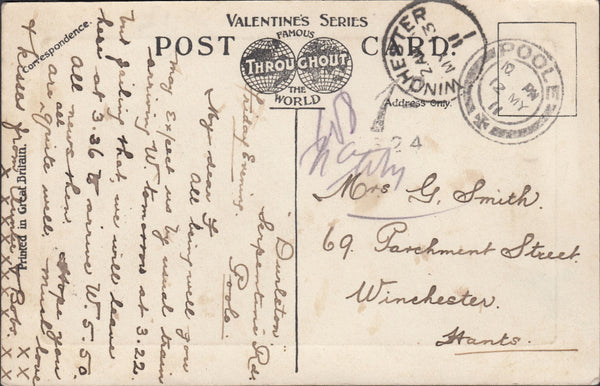 VALENTINE'S SERIES
FAMOUS
POST CARD.
THROUGHOUT
THE
WORLD
Correspondence.
Address Only.
Printed in Great Britain.
WINCHESTER
2 AM
MY 13
11
POOLE
10 PM
12 MY
11
24
Durleton
Serpentine Rd.
Poole.
Friday Evening.
My dear
All being well you
may expect us by usual train
arriving W. tomorrow at 3.22.
but failing that, we will leave
here at 3.36 & arrive W. 5.50
All news then. Hope you
all
are quite well. Much love
& kisses from
Bob.
x x x x x x x x
Mrs G. Smith.
69. Parchment Street.
Winchester.
Hants.